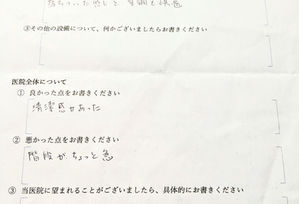 落ちついた感じと 空調も快適
③その他の設備について、何かございましたらお書きください
医院全体について
① 良かった点をお書きください
清潔感があった
② 悪かった点をお書きください
階段がちょっと急
③ 当医院に望まれることがございましたら、具体的にお書きください